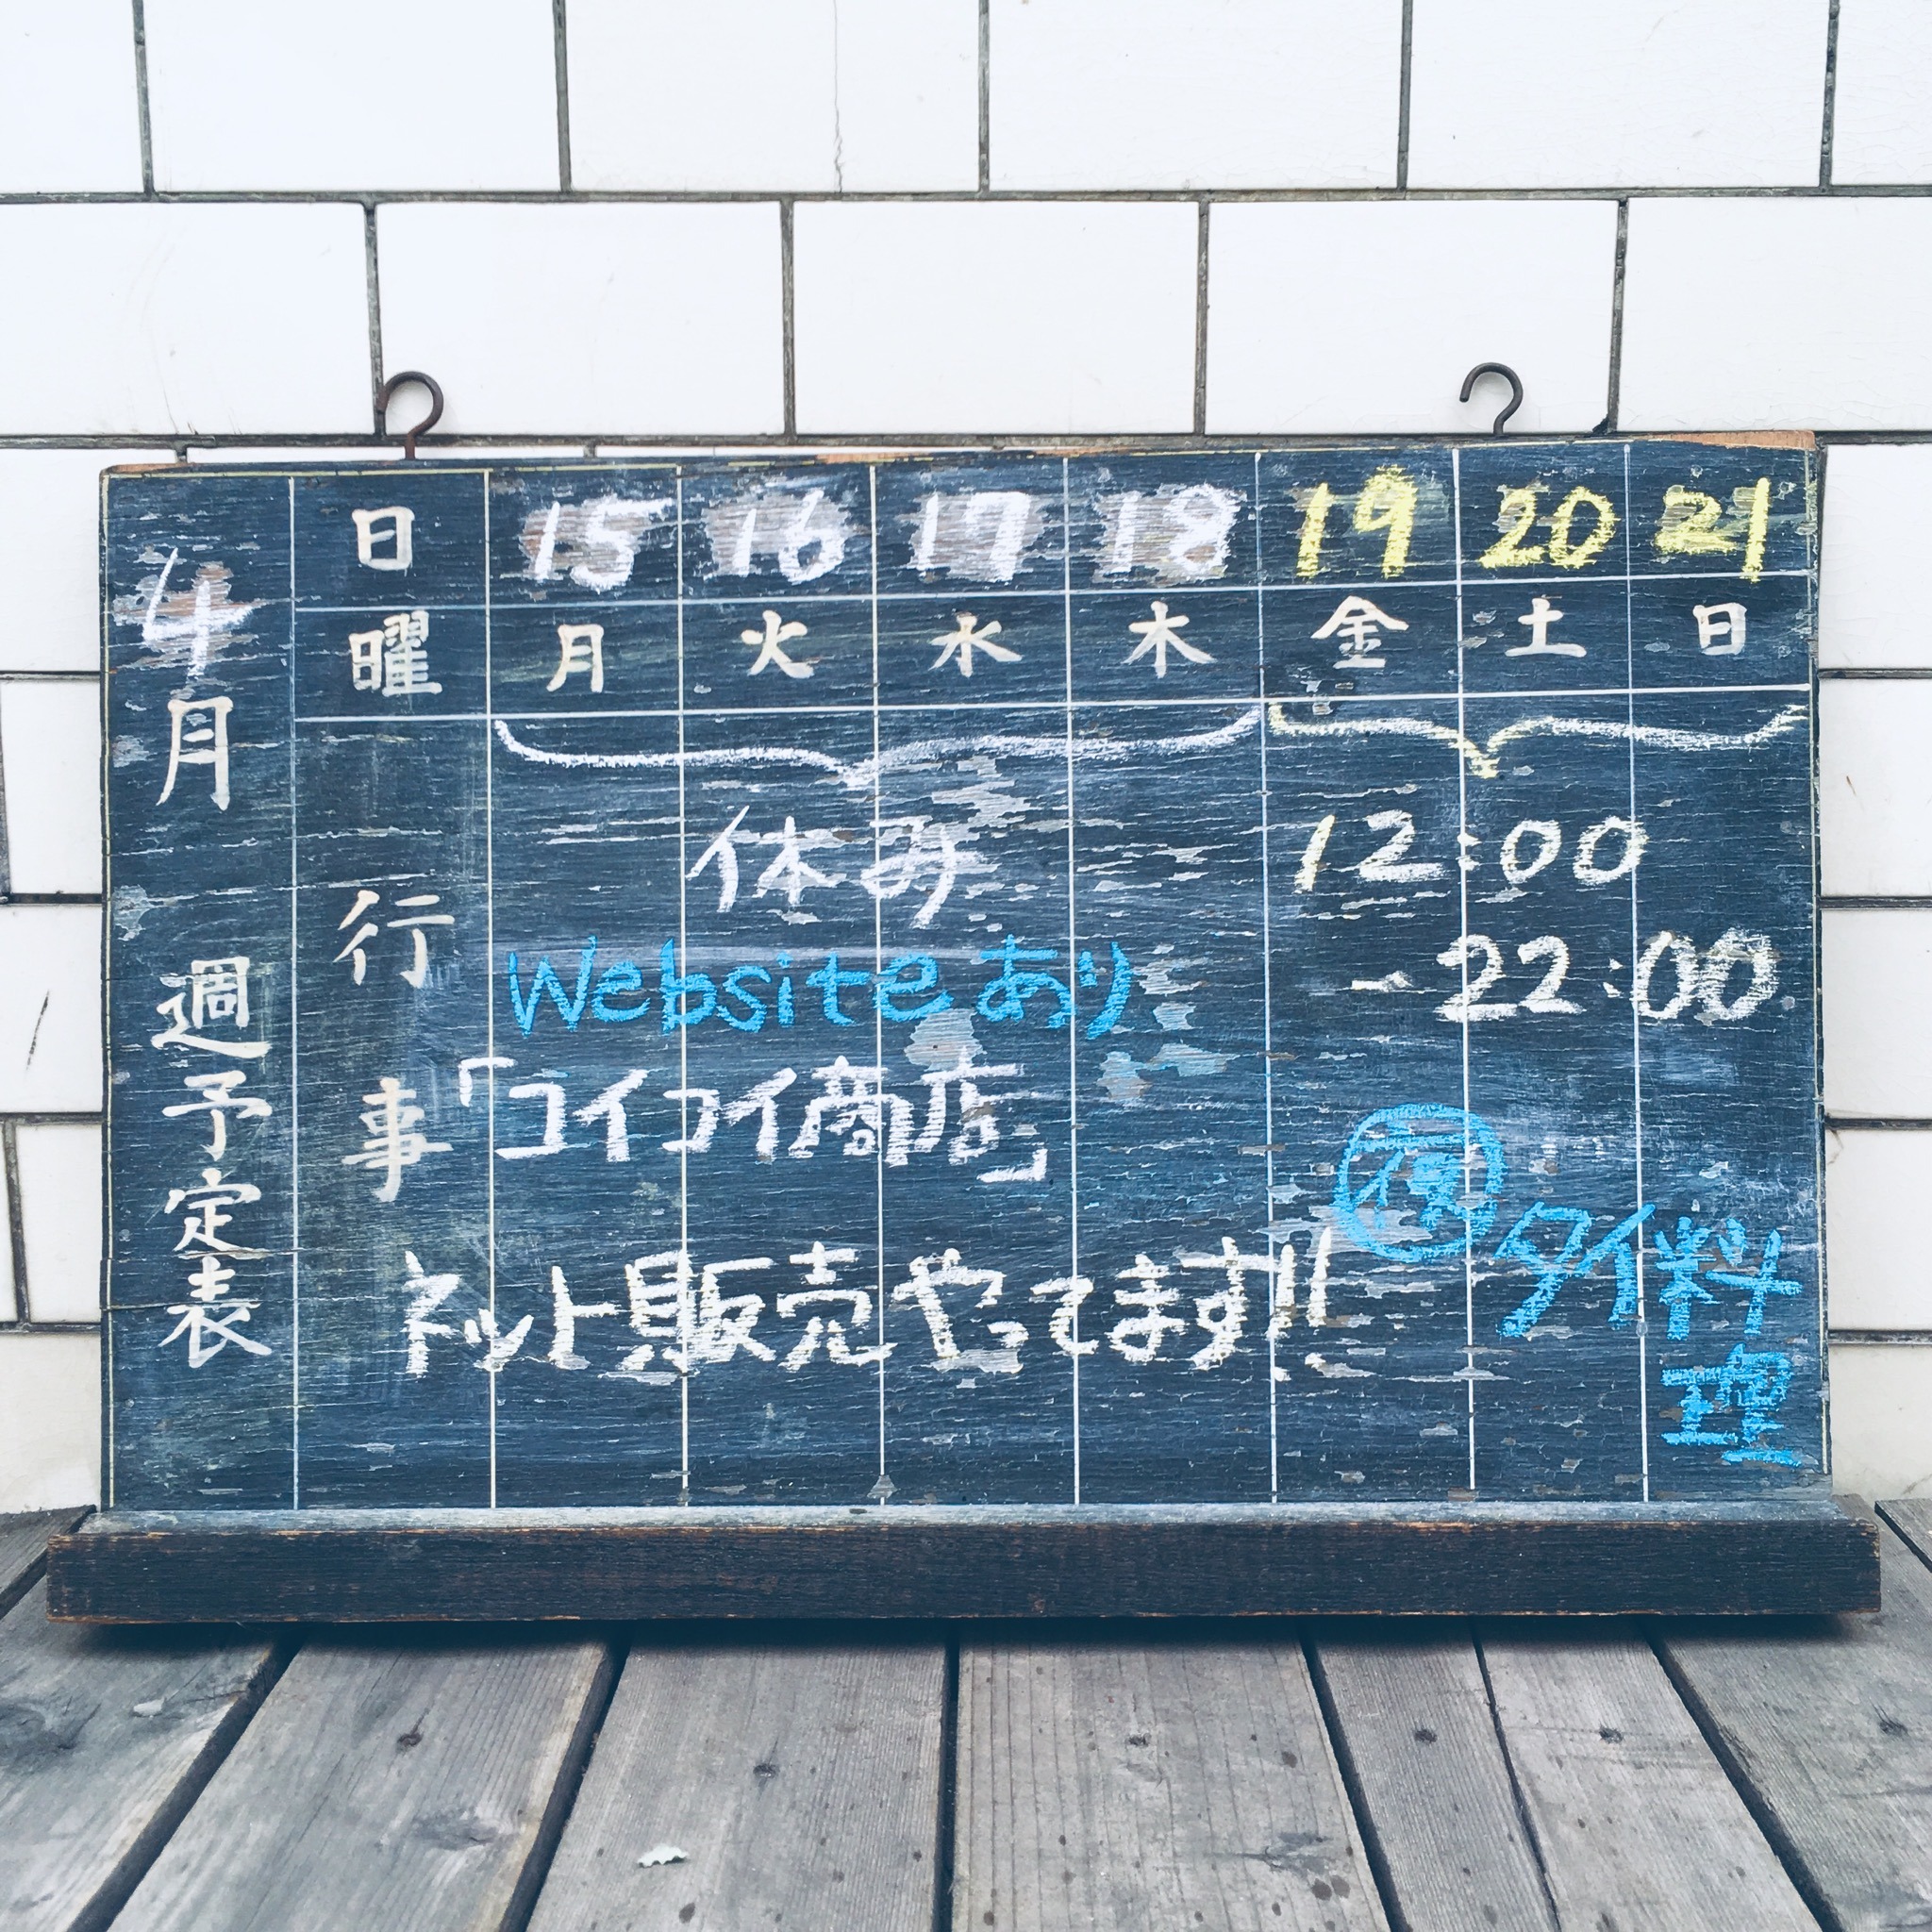 4月
週予定表
日 15 16 17 18 19 20 21
曜 月 火 水 木 金 土 日
行事
休み
Websiteあり
「コイコイ商店」
ネット販売やってます!!
12:00
~22:00
夜
タイ料
理